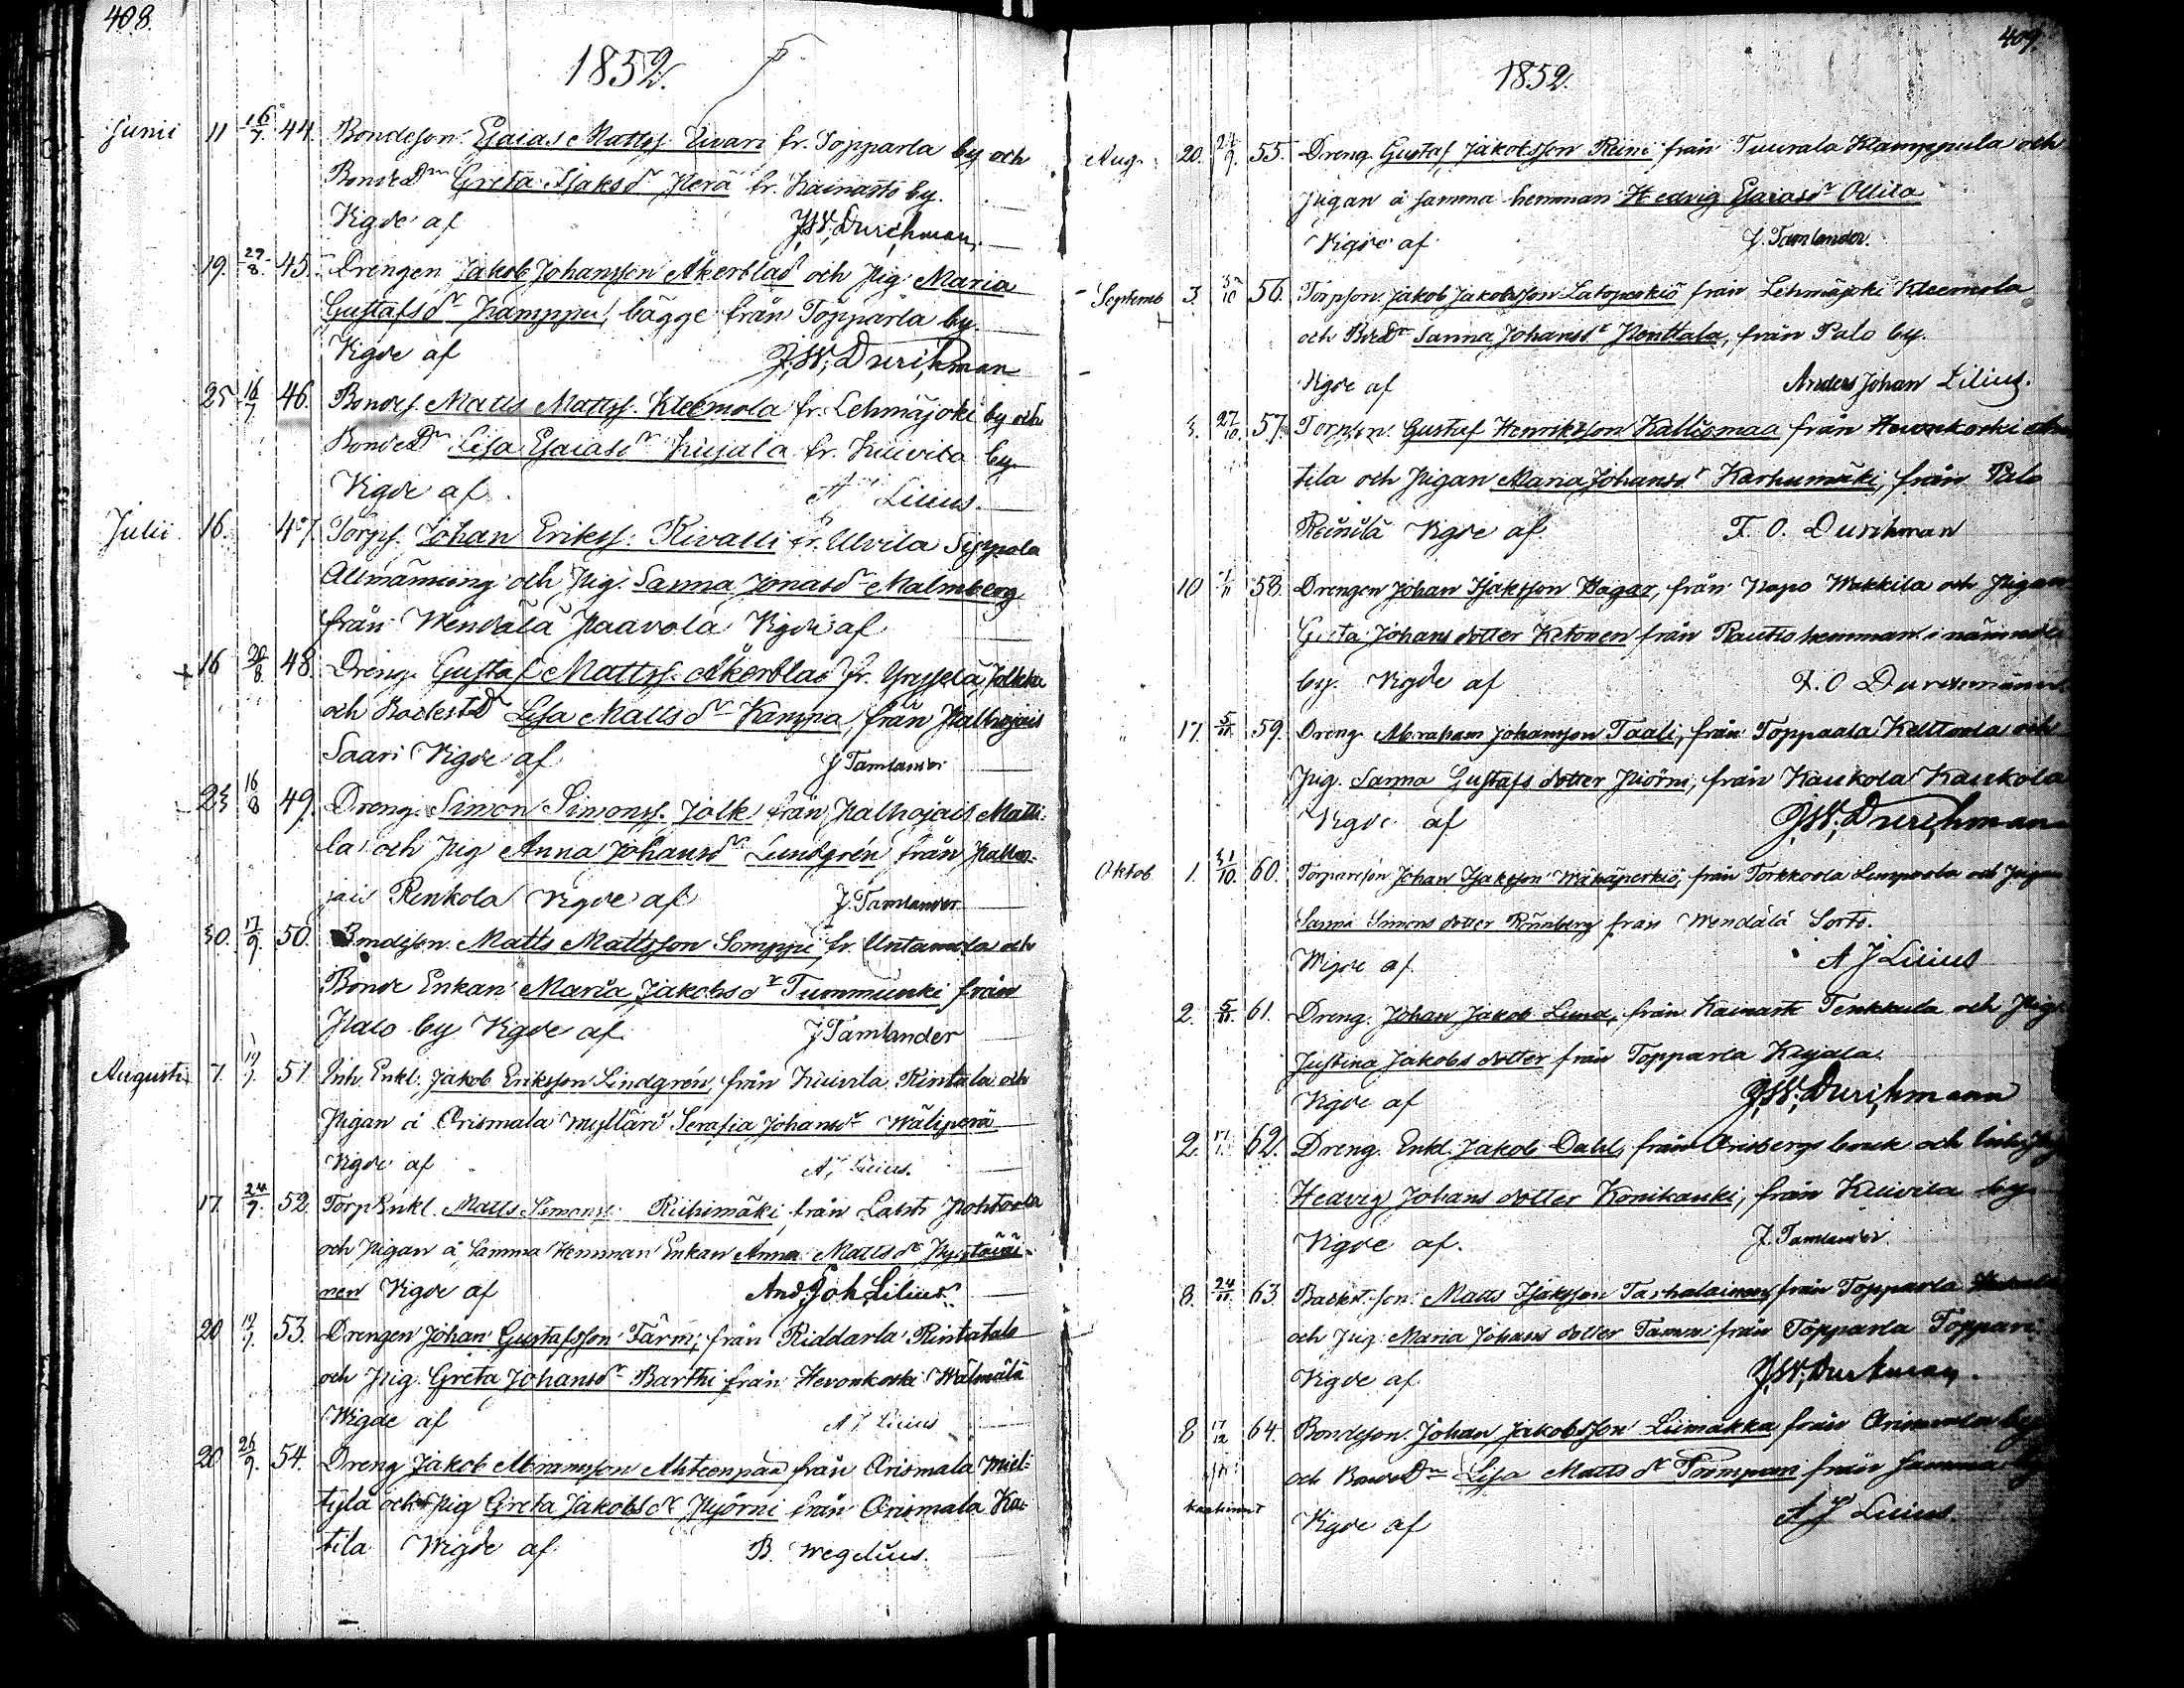 408.
1852.
Junii 11 16/7. 44. Bondeson. Esaias Mattss. Uvari fr. Topparla by och
BondeDr Greta Isaksdr Perä fr. Kainasto by.
Vigde af J,W,Durchman,
19. 29/8. 45. Drengen Jakob Johansson Åkerblad och Pig. Maria
Gustafsdr Kamppu, bägge från Topparla by
Vigde af J,W,Durchman
25 16/7 46. Bondes. Matts Mattss. Kleemola fr. Lehmäjoki by och
BondeDr Lisa Esaiasdr Kujala fr. Kuivila by
Vigde af A Lilius.
Julii 16. 47. Torps. Johan Erikss. Kivalli fr. Ulvila Seppola
Allmänning och Pig. Sanna Jonasdr Malmberg
från Wendälä Paavola Vigde af
16 20/8. 48. Dreng. Gustaf Mattss. Åkerblad fr. Yryselä Jolkka
och Backst.D Lisa Mattsdr Kamppa, från Palhojais
Saari Vigde af J Tamlander
23 16/8 49. Dreng. Simon Simonss. Jolk från Palhojais Matti-
la och Pig Anna Johansdr Lundgrén från Palho-
jais Renkola Vigde af J. Tamlander
30. 17/9. 50. Bondeson. Matts Mattsson Somppi fr. Untamala och
Bonde Enkan Maria Jakobsdr Tummunki från
Palo by Vigde af J Tamlander
Augusti 7. 51. Inh. Enkl. Jakob Eriksson Lindgrén, från Kuivila Rintala och
Pigan å Orismala Mylläri Serafia Johansdr Wäliperä
Vigde af A. Lilius.
17. 24/9. 52. TorpEnkl. Matts Simonss. Riihimäki från Lahti Pohtola
och Pigan å samma Hemman Enkan Anna Mattsdr
nen Vigde af And. Joh Lilius
20 53. Drengen Johan Gustafsson Färm, från Riddarla Rintatalo
och Pig. Greta Johansdr Barthi från Hevonkoski Wälmälä
Wigde af A J Lilius
20 26/9. 54. Dreng Jakob Abramsson Ahteenpää från Orismala Miel-
tylä och Pig Greta Jakobsdr Pyörni från Orismala Ka-
tila Wigde af B. Wegelius.
409.
1852.
Aug. 20. 24/9. 55. Dreng. Gustaf Jakobsson Reini från Tuurala Klamppula och
Pigan å samma hemman Hedvig Esaiasdr Ollila
Vigde af J. Tamlander.
Septemb 3. 56. Torpson. Jakob Jakobsson Latoperkiö från Lehmäjoki Kleemola
och BdeDr Sanna Johansdr Penttala, från Palo by.
Vigde af Anders Johan Lilius.
3. 27/10. 57. Torpson. Gustaf Henriksson Kaltiomaa från Hevonkoski
tila och Pigan Maria Johansdr Karhumäki, från Palo
Reinilä Vigde af F. O. Durchman
10 58. Drengen Johan Isaksson Hagar, från Napo Wakkila och Pigan
Greta Johans dotter Ketonen från Rautio hemman i nämnde
by. Vigde af F. O Durchman
" 17. 5/11. 59. Dreng. Abraham Johansson Taali, från Toppaala Kelttola och
Pig. Sanna Gustafs dotter Pyörni, från Kaukola Kaukola
Vigde af J,W,Durchman
Oktob. 1. 31/10. 60. Torpareson Johan Isaksson Wähäperkiö, från Torkkoola Lempola och Pigan
Sanna Simons dotter Rönnberg från Wendälä Sorto.
Wigde af A J Lilius
2. 5/11. 61. Dreng. Johan Jakob Lund, från Kainasto Tenkkula och Pig.
Justina Jakobs dotter från Topparla Kujala.
Vigde af J,W,Durchmann
2. 62. Dreng. Enkl. Jakob Dahl, från Orisbergs bruk och
Hedvig Johans dotter Konikanki, från Kuivila by
Vigde af. J. Tamlander
8. 24/11 63. Backst. son. Matts Isaksson Tarhalainen, från Topparla
och Pig. Maria Johans dotter Tamm från Topparla Toppari
Vigde af J,W,Durchman.
8 17/12 64. Bondeson. Johan Jakobsson Liimakka från Orismala by
och BondeDr Lisa Matts dr Poimpari från samma by
Vigde af A J Lilius